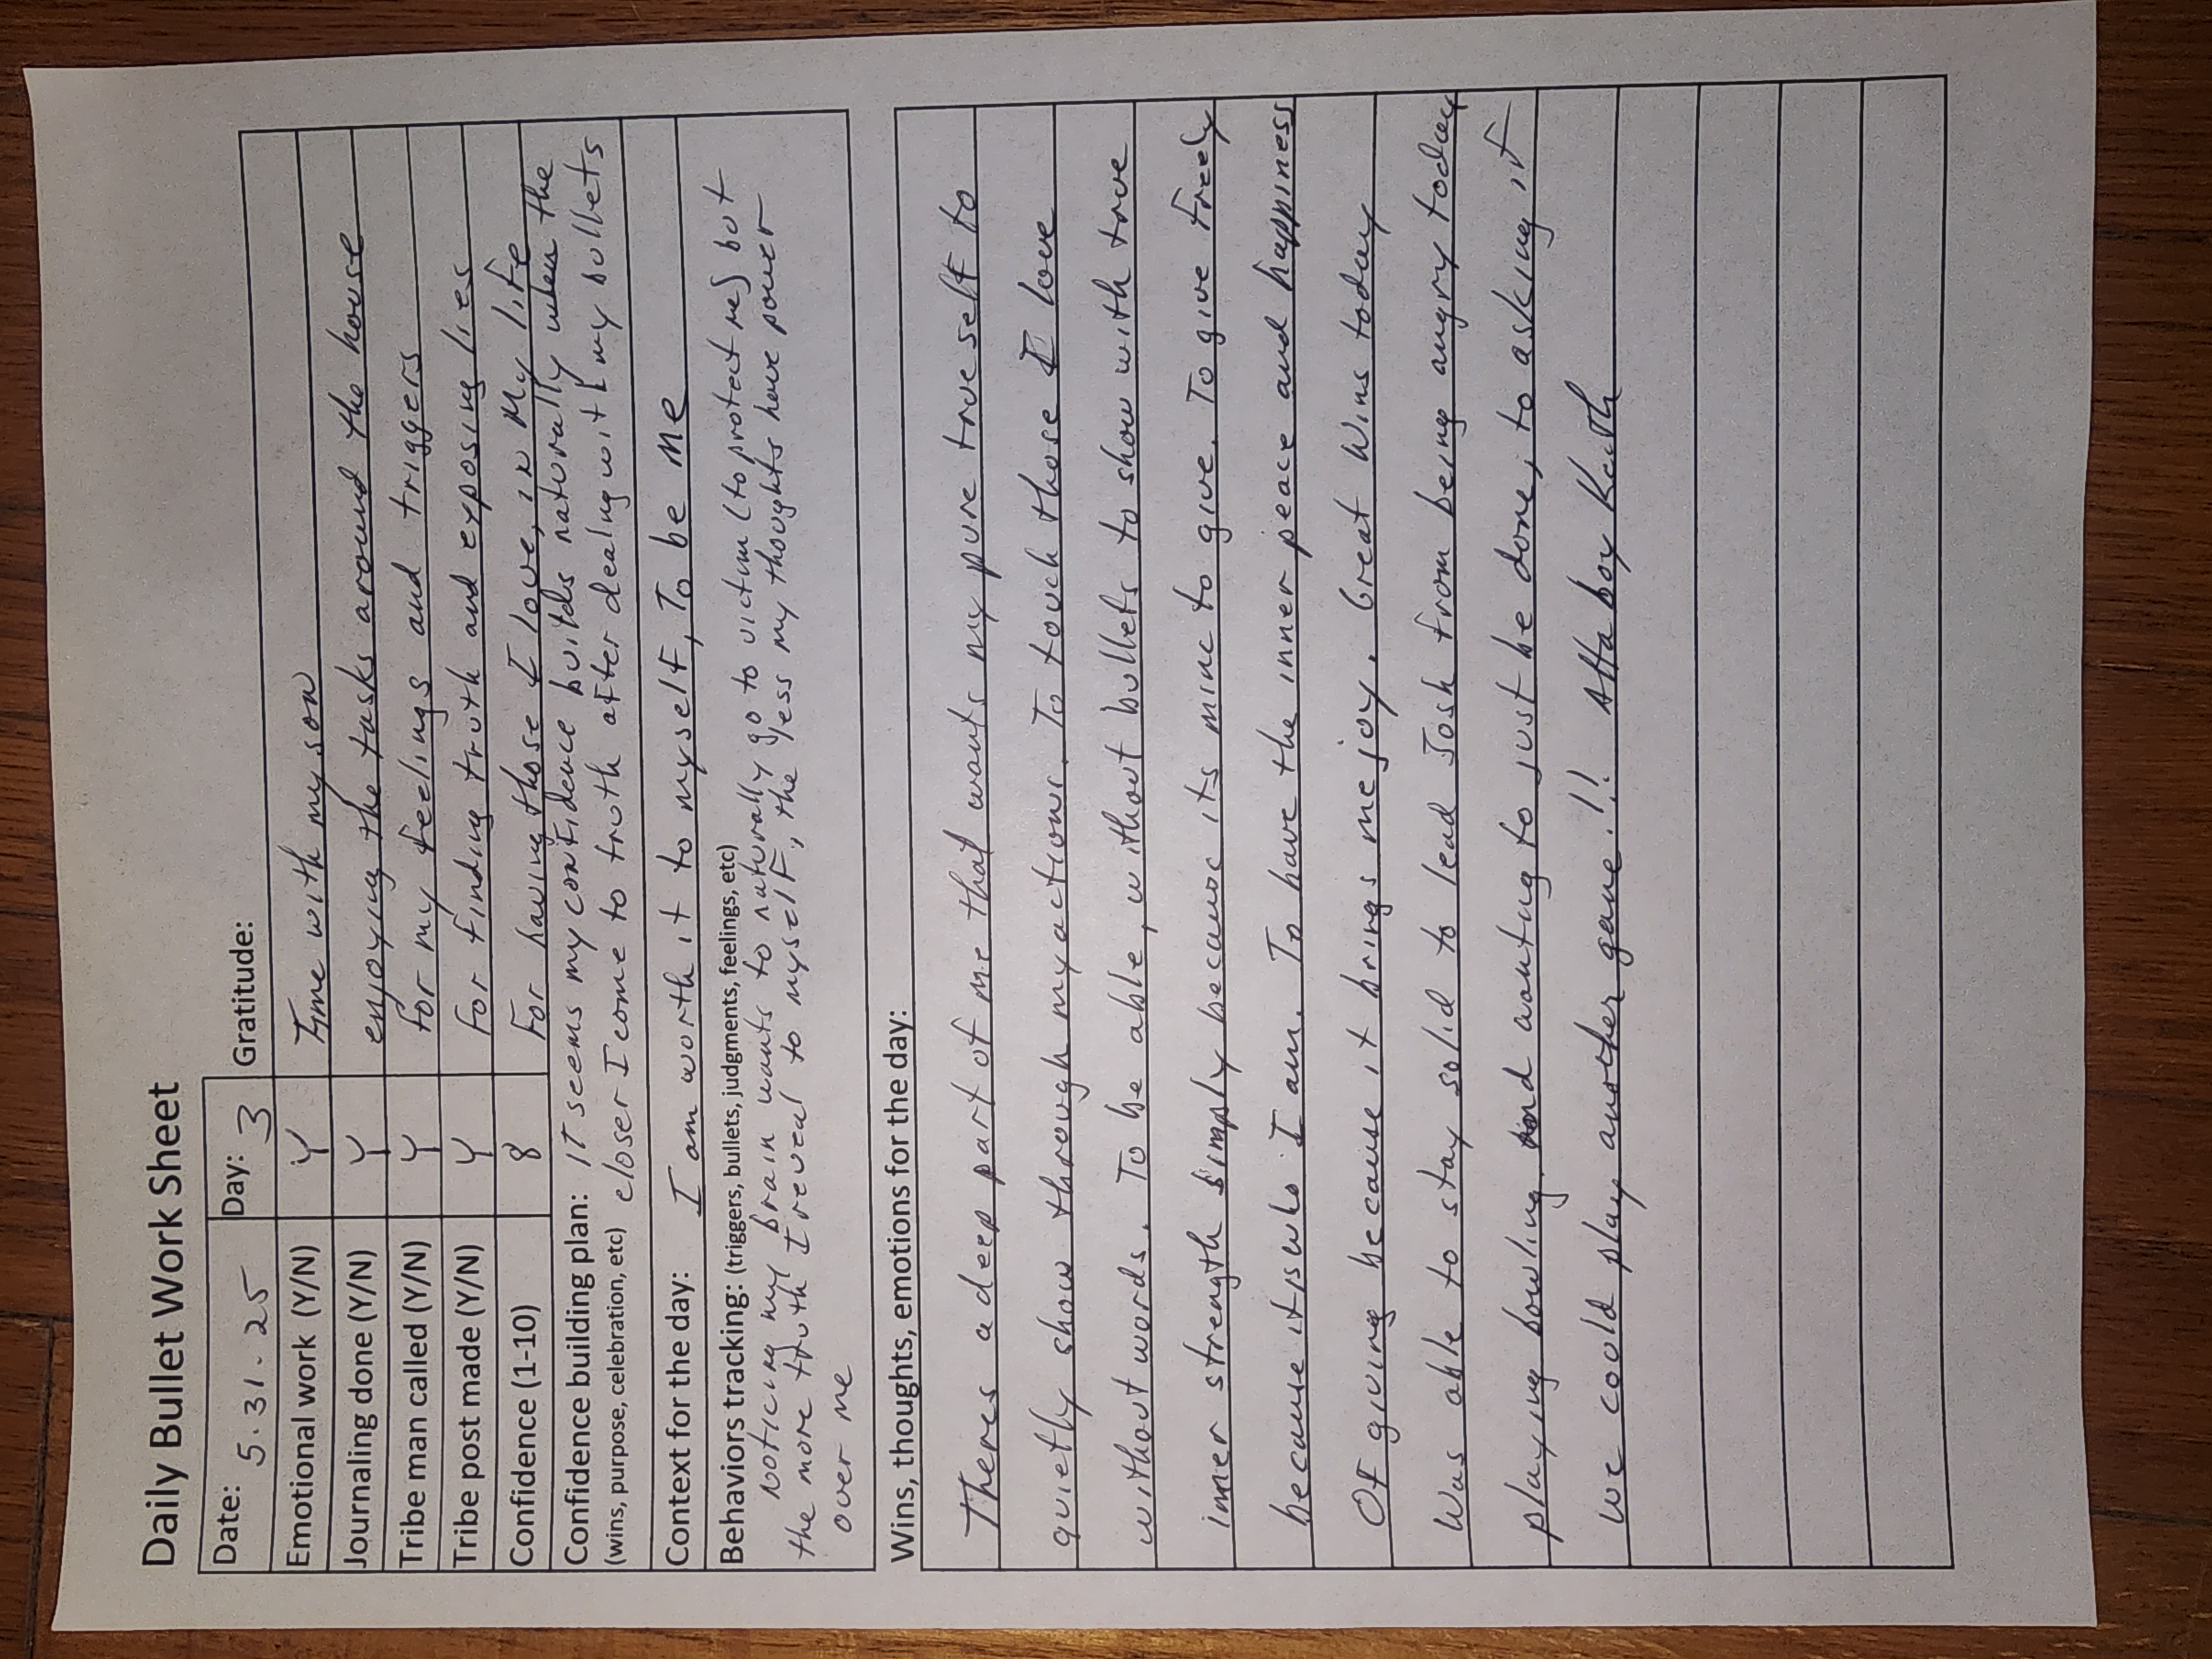 Daily Bullet Work Sheet
Date: 5.31.25 Day: 3 Gratitude:
Emotional work (Y/N) Y Time with my son
Journaling done (Y/N) Y enjoying the tasks around the house
Tribe man called (Y/N) Y for my feelings and triggers
Tribe post made (Y/N) Y For finding truth and exposing lies
Confidence (1-10) 8 For having those I love, in My life
Confidence building plan: IT seems my confidence builds naturally when the
(wins, purpose, celebration, etc) closer I come to truth after dealing with my bullets
Context for the day: I am worth it to myself, To be me
Behaviors tracking: (triggers, bullets, judgments, feelings, etc)
Noticing my brain wants to naturally go to victim (to protect me) but
the more truth I reveal to myself, the less my thoughts have power
over me
Wins, thoughts, emotions for the day:
Theres a deep part of me that wants my pure true self to
quietly show through my actions. To touch those I love
without words. To be able, without bullets to show with true
inner strength simply because its mine to give. To give freely
because it is who I am. To have the inner peace and happiness
Of giving because it brings me joy. Great Wins today
Was able to stay solid to lead Josh from being angry today
playing bowling and wanting to just be done, to asking if
we could play another game!! Atta boy Keith